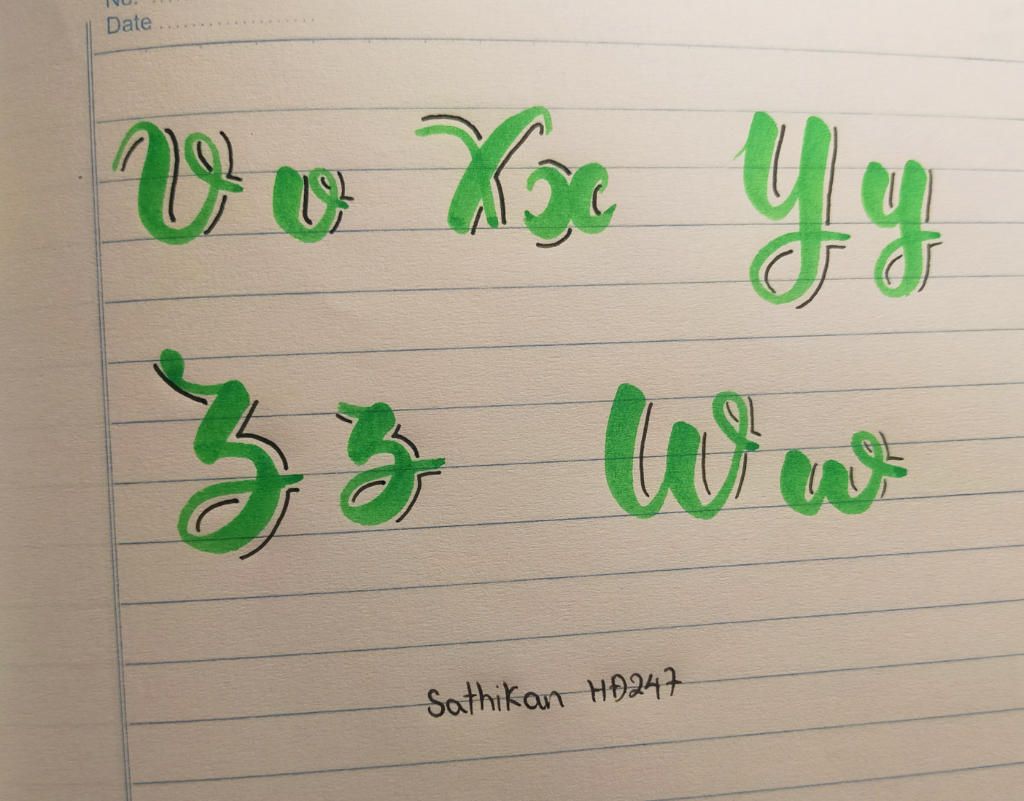 No.
Date
V v X x Y y
Z z W w
Sathikan HD247